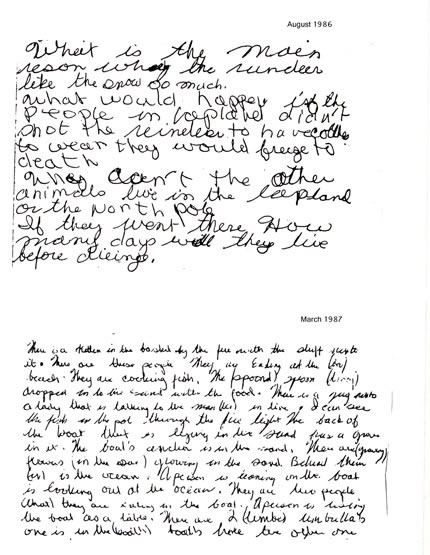 August 1986
What is the main
reson whay the rundeer
like the snow so much.
what would happen if the
People in Lapland didn't
shot the reindeer to have
to wear they would freeze to
death
Why can't the other
animals live in the Lapland
or the North pole
If they went there How
many days will they live
before dieing.
March 1987
There is a in the by the fire with the stuff
it. There are three people. They eating at the
beach. They are cooking fish. The spoon
dropped in to the sand with the food. There is a jug next
a lady that is talking to the man I can see
the fish in the pot through the fire light The back of
the boat that is lying in the sand has a
in it. The boat's anchor is in the sand. There are
flowers growing in the sand Behind them
is the ocean. A person is leaning on the boat
is looking out at the ocean. They are two people
(What) they are in the boat. A person is using
the boat as a table. There are 2 umbrella's
one is in the boat's one